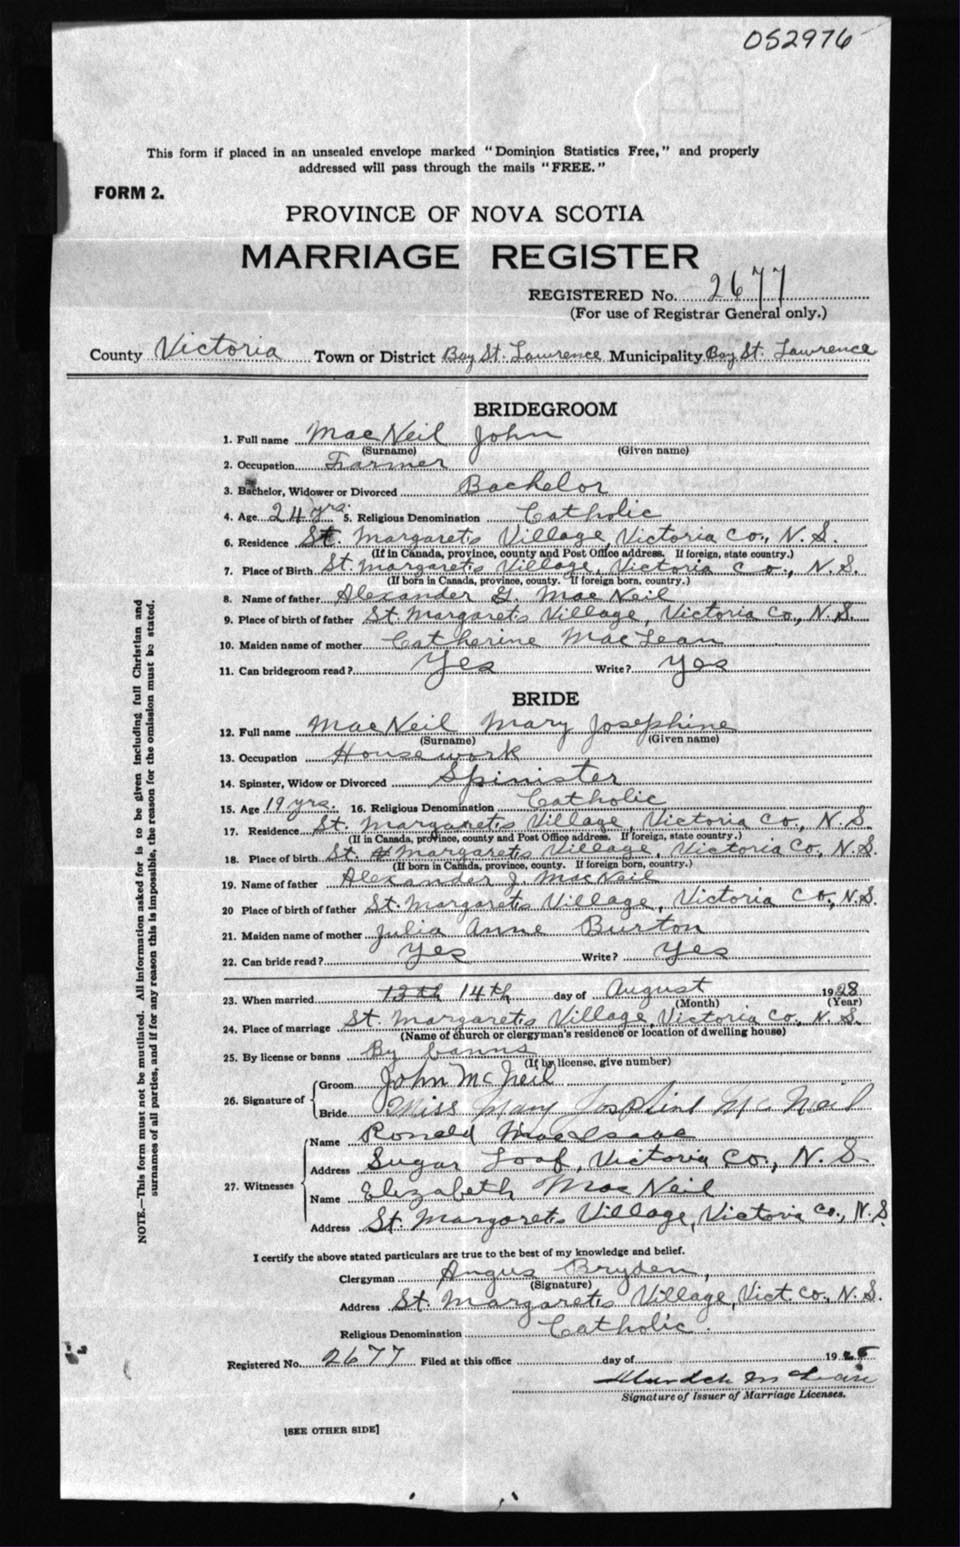 052976
This form if placed in an unsealed envelope marked "Dominion Statistics Free," and properly
addressed will pass through the mails "FREE."
FORM 2.
PROVINCE OF NOVA SCOTIA
MARRIAGE REGISTER
REGISTERED No. 2677
(For use of Registrar General only.)
County Victoria Town or District Bay St. Lawrence Municipality Bay St. Lawrence
BRIDEGROOM
1. Full name MacNeil John
(Surname) (Given name)
2. Occupation Farmer
3. Bachelor, Widower or Divorced Bachelor
4. Age 24 yrs. 5. Religious Denomination Catholic
6. Residence St. Margaret's Village, Victoria Co., N.S.
(If in Canada, province, county and Post Office address. If foreign, state country.)
7. Place of Birth St. Margaret's Village, Victoria Co., N.S.
(If born in Canada, province, county. If foreign born, country.)
8. Name of father Alexander G. MacNeil
9. Place of birth of father St. Margaret's Village, Victoria Co., N.S.
10. Maiden name of mother Catherine MacLean
11. Can bridegroom read? Yes Write? Yes
BRIDE
12. Full name MacNeil Mary Josephine
(Surname) (Given name)
13. Occupation Housework
14. Spinster, Widow or Divorced Spinister
15. Age 19 yrs. 16. Religious Denomination Catholic
17. Residence St. Margaret's Village, Victoria Co., N.S.
(If in Canada, province, county and Post Office address. If foreign, state country.)
18. Place of birth St. Margaret's Village, Victoria Co., N.S.
(If born in Canada, province, county. If foreign born, country.)
19. Name of father Alexander J. MacNeil
20 Place of birth of father St. Margaret's Village, Victoria Co., N.S.
21. Maiden name of mother Julia Anne Burton
22. Can bride read? Yes Write? Yes
23. When married 13th 14th day of August 1928
(Month) (Year)
24. Place of marriage St. Margaret's Village, Victoria Co., N.S.
(Name of church or clergyman's residence or location of dwelling house)
25. By license or banns By banns
(If by license, give number)
26. Signature of Groom John McNeil
Bride Miss Mary Josphine McNeil
27. Witnesses Name Ronald MacIsaac
Address Sugar Loaf, Victoria Co., N.S.
Name Elizabeth MacNeil
Address St. Margaret's Village, Victoria Co., N.S.
I certify the above stated particulars are true to the best of my knowledge and belief.
Clergyman Angus Bryden,
(Signature)
Address St. Margaret's Village, Vict. Co., N.S.
Religious Denomination Catholic.
Registered No. 2677 Filed at this office day of 19
Signature of Issuer of Marriage Licenses.
[SEE OTHER SIDE]
NOTE.—This form must not be mutilated. All information asked for is to be given including full Christian and
surnames of all parties, and if for any reason this is impossible, the reason for the omission must be stated.